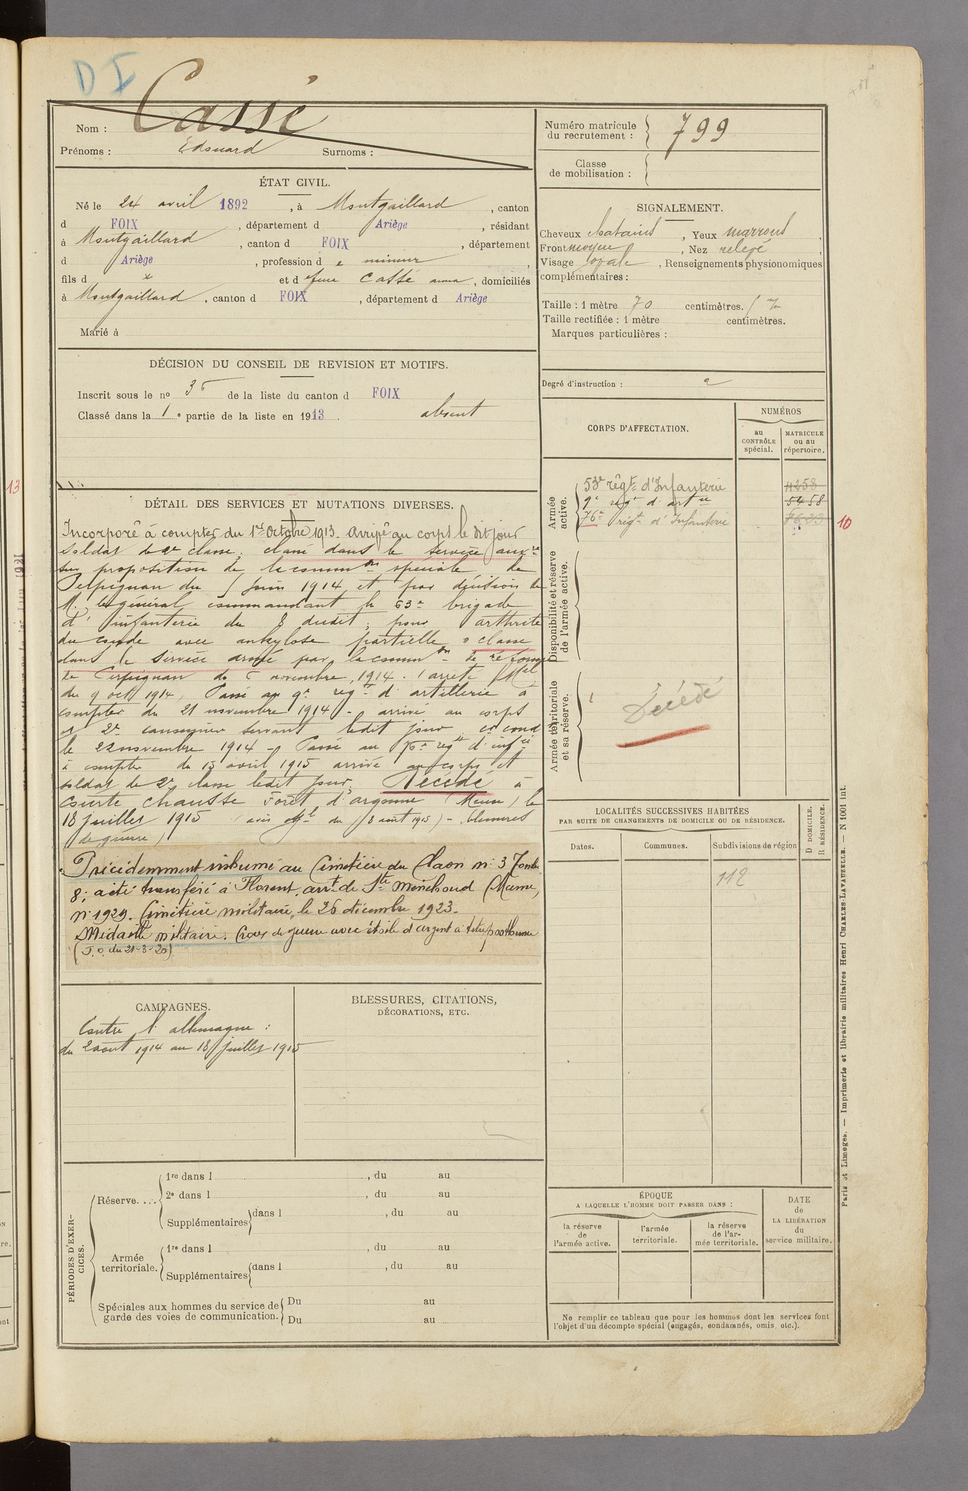 D I
Nom : Cassé
Prénoms : Edouard Surnoms :
Numéro matricule
du recrutement : 799
Classe
de mobilisation :
ÉTAT CIVIL.
Né le 24 avril 1892, à Montgaillard, canton
d FOIX, département d Ariège, résidant
à Montgaillard, canton d FOIX, département
d Ariège, profession d e mineur,
fils d x et d e feue Cassé anna, domiciliés
à Montgaillard, canton d FOIX, département d Ariège
Marié à
SIGNALEMENT.
Cheveux chatains, Yeux marrons
Front moyen, Nez relevé
Visage ovale, Renseignements physionomiques
complémentaires :
Taille : 1 mètre 70 centimètres.
Taille rectifiée : 1 mètre centimètres.
Marques particulières :
Degré d'instruction : 2
DÉCISION DU CONSEIL DE REVISION ET MOTIFS.
Inscrit sous le no 35 de la liste du canton d FOIX
Classé dans la 1 e partie de la liste en 1913. absent
CORPS D'AFFECTATION.
NUMÉROS
au
CONTRÔLE
spécial.
MATRICULE
ou au
répertoire.
Armée
active.
53e régt d'Infanterie 4258
9e régt d'artie 5458
76e régt d'Infanterie
13
10
Disponibilité et réserve
de l'armée active.
Armée territoriale
et sa réserve.
Décédé
DÉTAIL DES SERVICES ET MUTATIONS DIVERSES.
Incorporé à compter du 1er Octobre 1913. Arrivé au corps le dit jour
Soldat de 2e classe, classé dans le service auxre
sur proposition de la common spéciale de
Perpignan du 5 Juin 1914 et par décision de
M. le général commandant la 63e brigade
d'infanterie du 8 dudit, pour arthrite
du coude avec ankylose partielle, classé
dans le service armé par la common de réforme
de Perpignan du 5 novembre 1914. (arrêté Mel
du 9 oct 1914, Passé au 9e régt d'artillerie à
compter du 21 novembre 1914 - arrivé au corps
et 2e canonnier servant ledit jour cr cond
le 22 novembre 1914 - Passé au 76e régt d'infie
à compter du 13 avril 1915 arrivé au corps et
soldat de 2e classe ledit jour, Décédé à
Courte chausse Forêt d'argonne (Meuse) le
18 juillet 1915 (avis Mel du 13 août 1915) - blessures
de guerre)
Précédemment inhumé au Cimetière du Claon n° 3 Tombe
8; a été transféré à Florent, arrt de Ste Menehoud (Marne)
n° 1929. Cimetière militaire, le 26 décembre 1923.
Médaille militaire. Croix de guerre avec étoile d'argent à titre posthume
(J.O. du 21-3-20)
LOCALITÉS SUCCESSIVES HABITÉES
PAR SUITE DE CHANGEMENTS DE DOMICILE OU DE RÉSIDENCE.
Dates. Communes. Subdivisions de région
D DOMICILE.
R RÉSIDENCE.
112
CAMPAGNES.
Contre l'allemagne :
du 2 aout 1914 au 18 juillet 1915
BLESSURES, CITATIONS,
DÉCORATIONS, ETC.
PÉRIODES D'EXER-
CICES.
Réserve....
1re dans l , du au
2e dans l , du au
Supplémentaires dans l , du au
Armée
territoriale.
1re dans l , du au
Supplémentaires dans l , du au
Spéciales aux hommes du service de
garde des voies de communication.
Du au
Du au
ÉPOQUE
A LAQUELLE L'HOMME DOIT PASSER DANS :
la réserve
de
l'armée active.
l'armée
territoriale.
la réserve
de l'ar-
mée territoriale.
DATE
de
LA LIBÉRATION
du
service militaire.
Ne remplir ce tableau que pour les hommes dont les services font
l'objet d'un décompte spécial (engagés, condamnés, omis, etc.).
Paris et Limoges. — Imprimerie et librairie militaires Henri CHARLES-LAVAUZELLE. — N 1001 int.